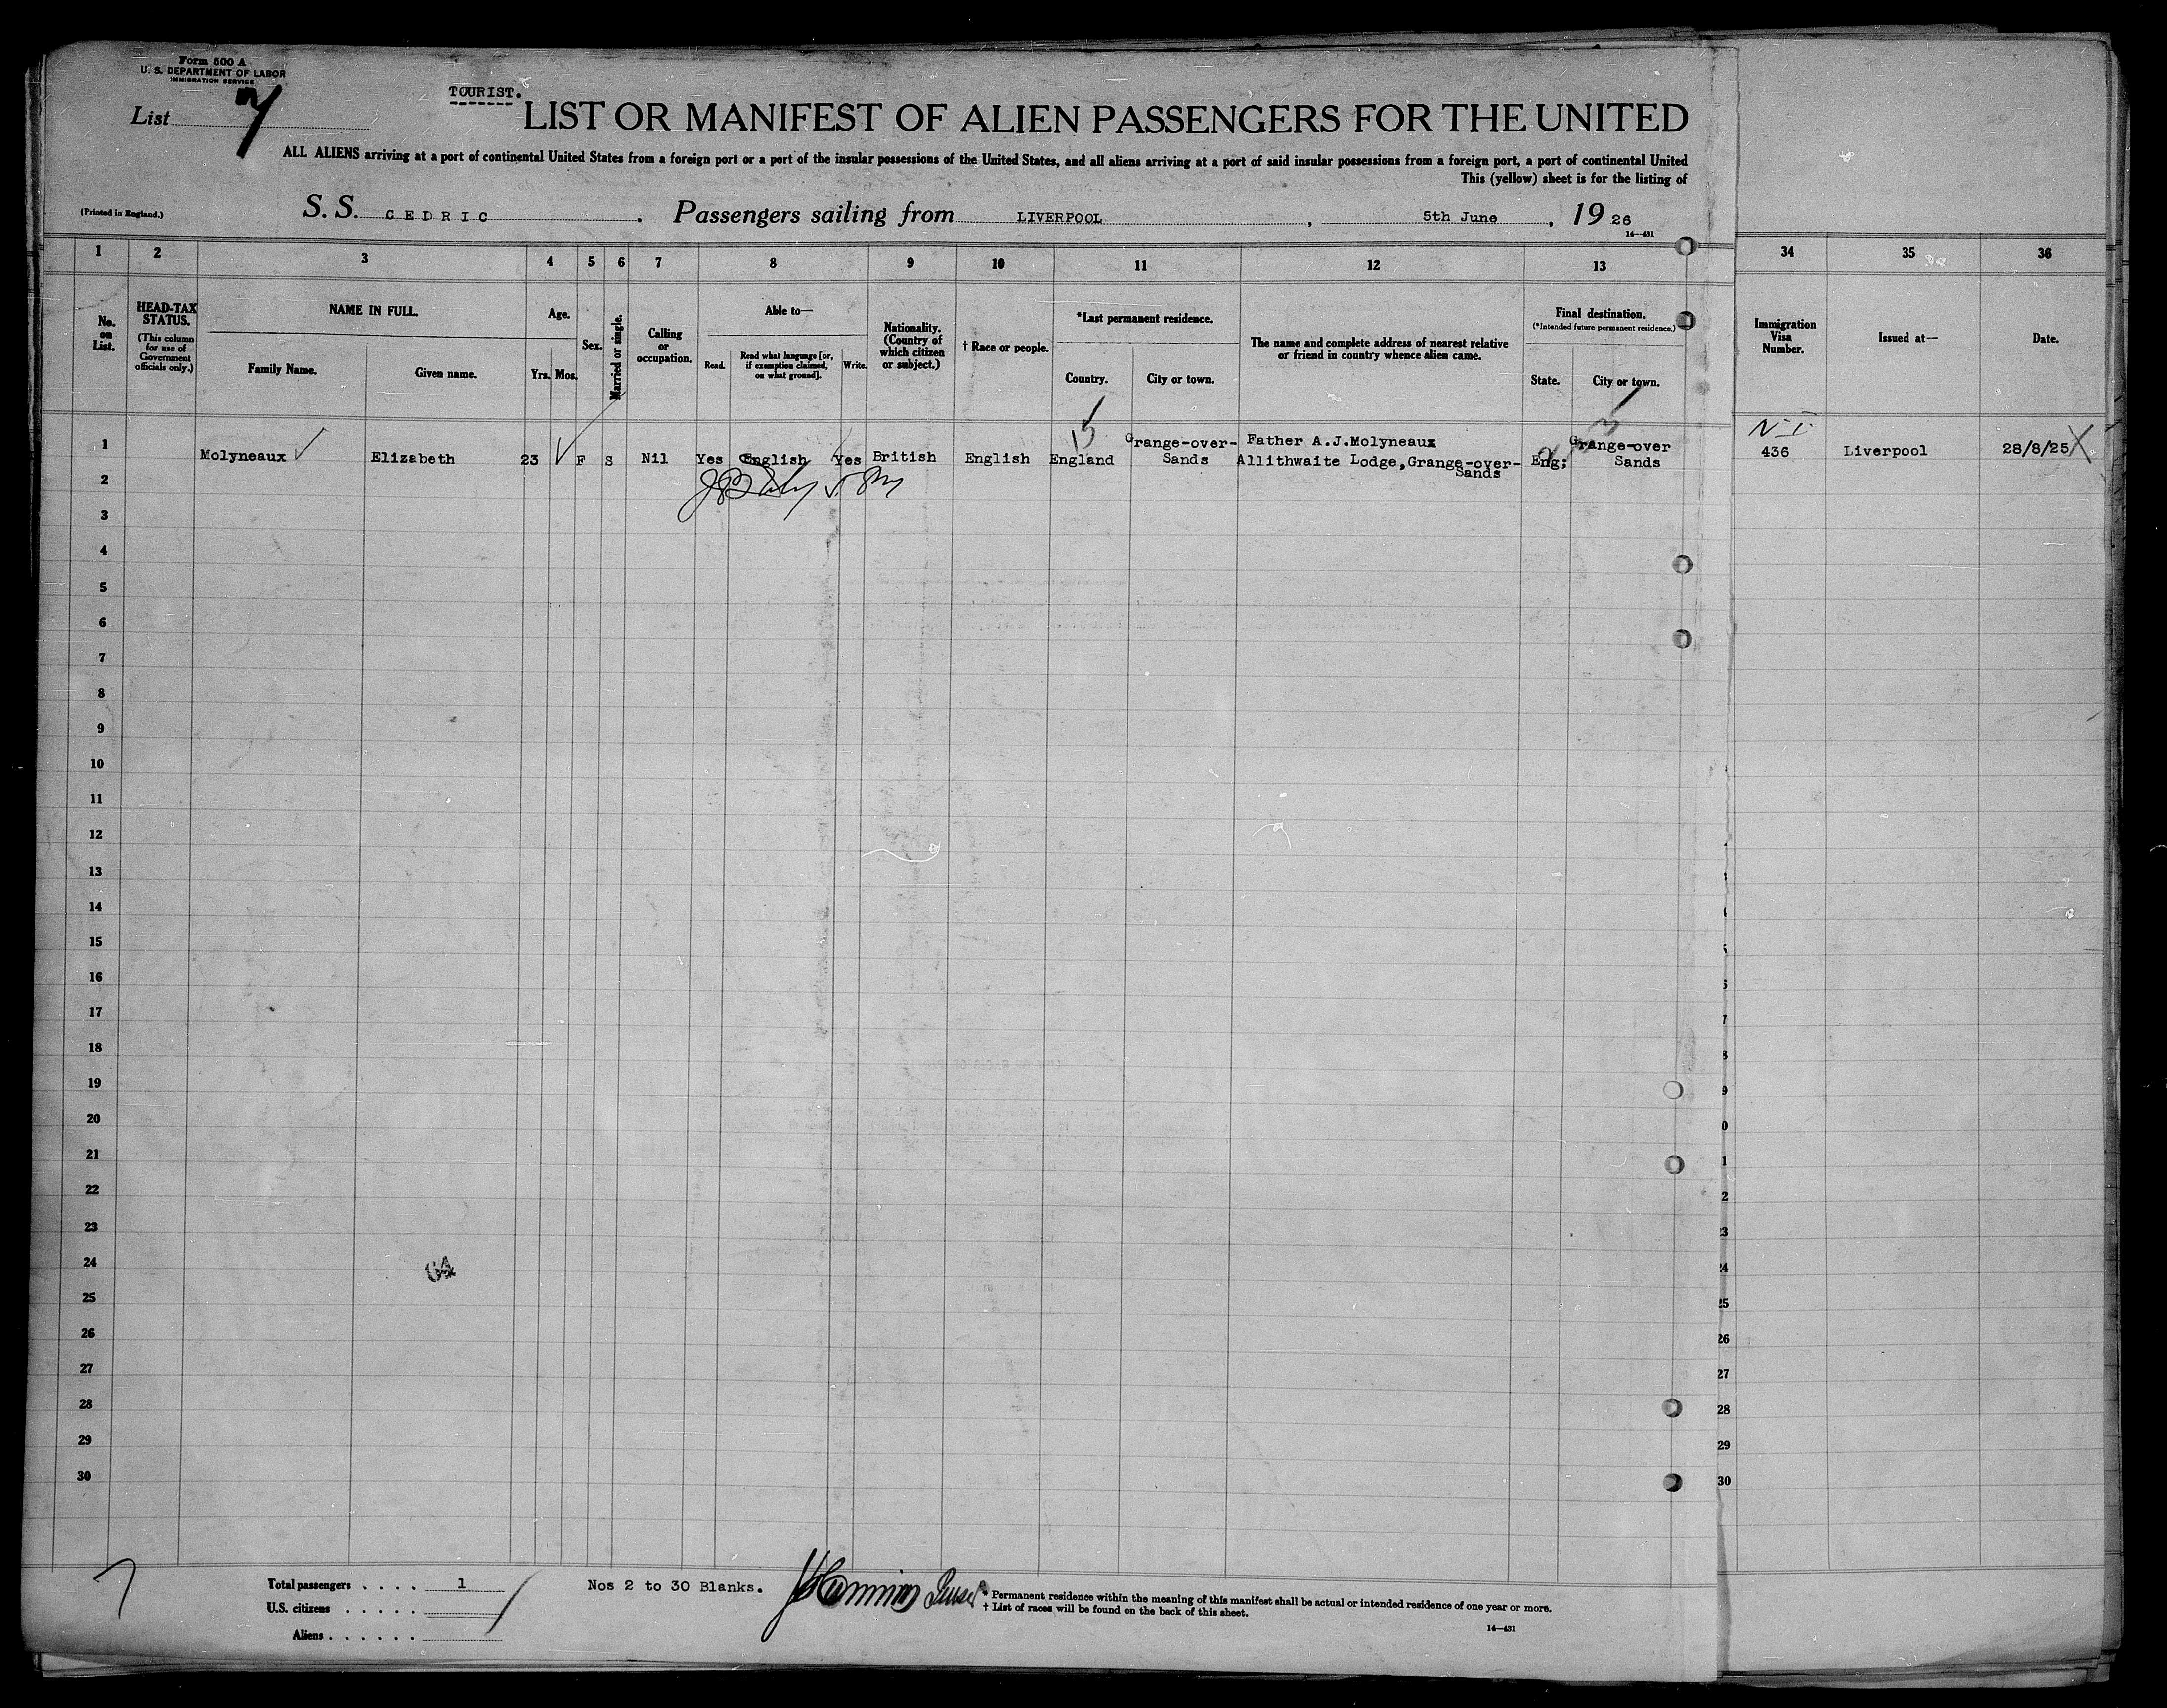 Form 500 A
U. S. DEPARTMENT OF LABOR
IMMIGRATION SERVICE
List 7
TOURIST.
LIST OR MANIFEST OF ALIEN PASSENGERS FOR THE UNITED
ALL ALIENS arriving at a port of continental United States from a foreign port or a port of the insular possessions of the United States, and all aliens arriving at a port of said insular possessions from a foreign port, a port of continental United
This (yellow) sheet is for the listing of
(Printed in England.)
S. S. CEDRIC . Passengers sailing from LIVERPOOL , 5th June , 19 26
14—431
1 2 3 4 5 6 7 8 9 10 11 12 13 34 35 36
No. on List.
HEAD-TAX STATUS.
(This column for use of Government officials only.)
NAME IN FULL.
Family Name. Given name.
Age.
Yrs. Mos.
Sex.
Married or single.
Calling or occupation.
Able to—
Read. Read what language [or, if exemption claimed, on what ground]. Write.
Nationality. (Country of which citizen or subject.)
† Race or people.
*Last permanent residence.
Country. City or town.
The name and complete address of nearest relative or friend in country whence alien came.
Final destination.
(*Intended future permanent residence.)
State. City or town.
Immigration Visa Number.
Issued at—
Date.
15
N-I
1 Molyneaux Elizabeth 23 F S Nil Yes English Yes British English England Grange-over-Sands Father A.J.Molyneaux Allithwaite Lodge,Grange-over-Sands Eng; Grange-over Sands 436 Liverpool 28/8/25
2
3
4
5
6
7
8
9
10
11
12
13
14
15
16
17
18
19
20
21
22
23
24
25
26
27
28
29
30
64
Total passengers . . . . 1
U.S. citizens . . . . .
Aliens . . . . . .
7
Nos 2 to 30 Blanks.
Purser
* Permanent residence within the meaning of this manifest shall be actual or intended residence of one year or more.
† List of races will be found on the back of this sheet.
14—431
28
29
30